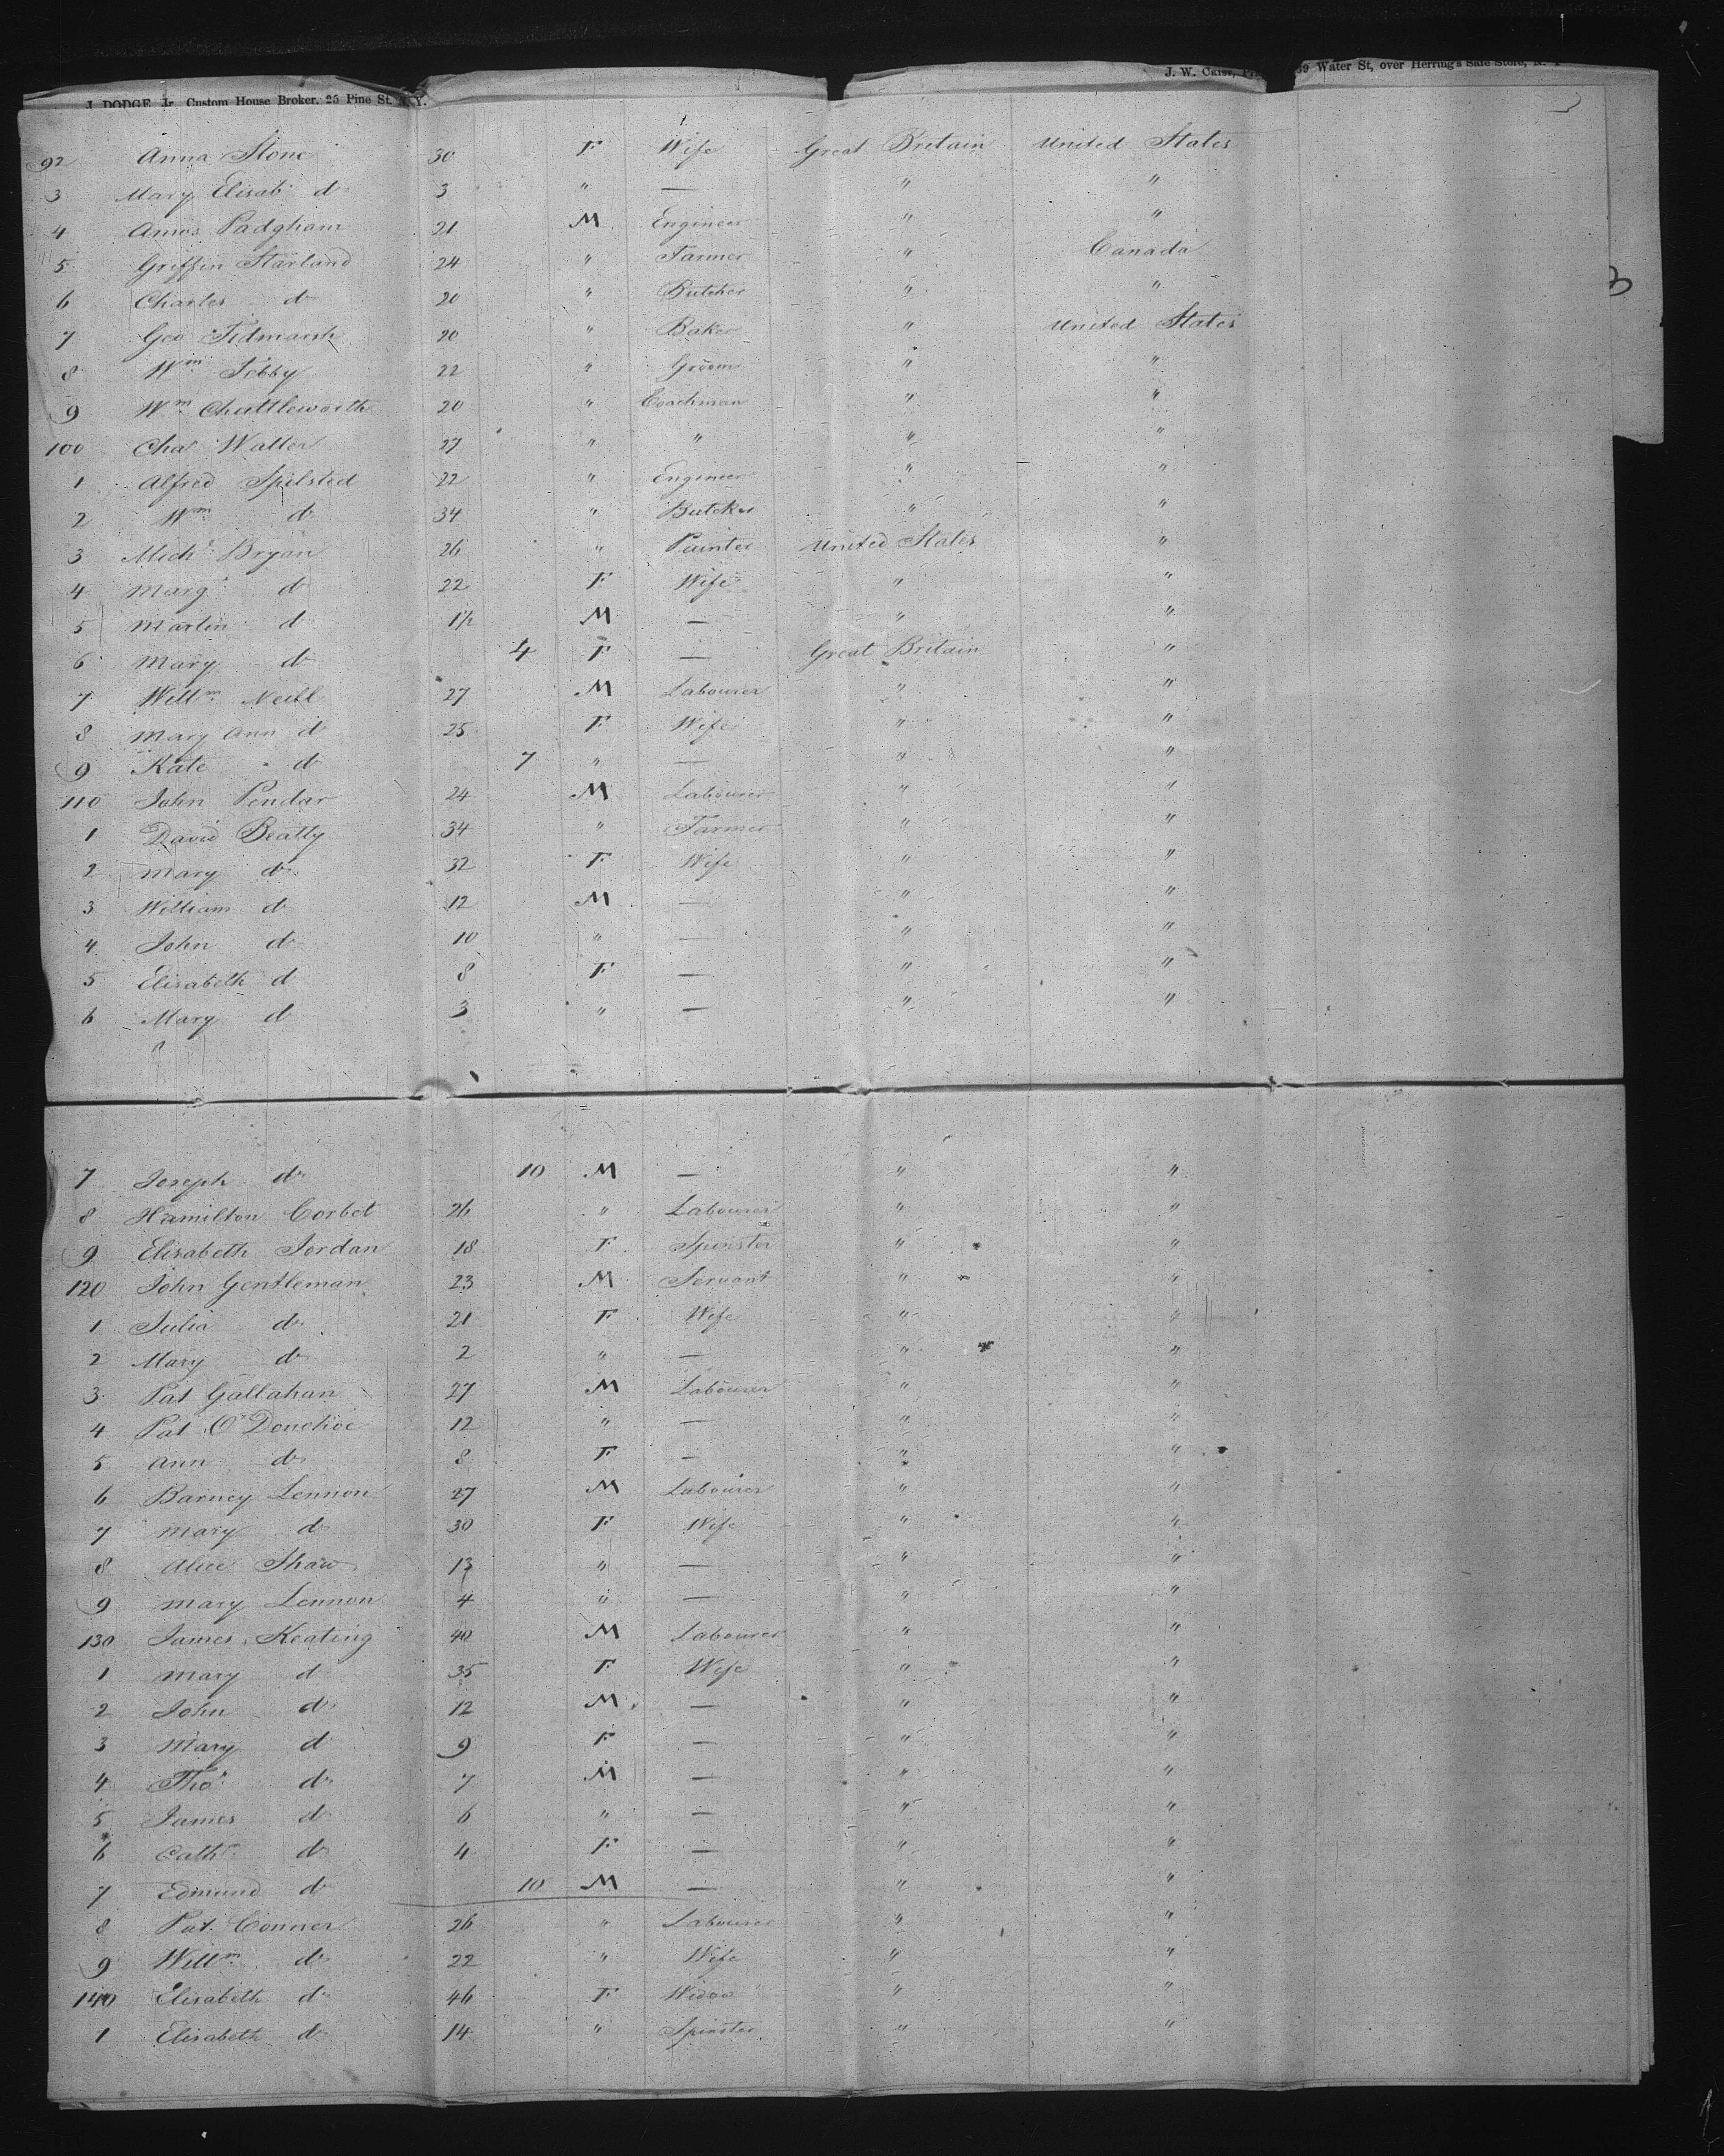 J. DODGE Jr. Custom House Broker, 25 Pine St. N.Y.
J. W. 9 Water St, over Herring's Safe Store, N. Y
92 Anna Stone 30 F Wife Great Britain United States
3 Mary Elisab. do 3 " — " "
4 Amos Padgham 21 M Engineer " "
5 Griffin Starland 24 " Farmer " Canada
6 Charles do 20 " Butcher " "
7 Geo Tidmarsh 20 " Baker " United States
8 Wm Tibby 22 " Groom " "
9 Wm Chuttleworth 20 " Coachman " "
100 Cha Walter 27 " " " "
1 Alfred Spilsted 22 " Engineer " "
2 Wm do 34 " Butcher " "
3 Michl Bryan 26 " Painter United States "
4 Margt do 22 F Wife " "
5 Martin do 1½ M — " "
6 Mary do 4 F — Great Britain "
7 Willm Neill 27 M Labourer " "
8 Mary Ann do 25 F Wife " "
9 Kate do 7 " — " "
110 John Pendar 24 M Labourer " "
1 David Beatty 34 " Farmer " "
2 Mary do 32 F Wife " "
3 William do 12 M — " "
4 John do 10 " — " "
5 Elisabeth do 8 F — " "
6 Mary do 3 " — " "
7 Joseph do 10 M — " "
8 Hamilton Corbet 26 " Labourer " "
9 Elisabeth Jordan 18 F Spinster " "
120 John Gentleman 23 M Servant " "
1 Julia do 21 F Wife " "
2 Mary do 2 " — " "
3 Pat Gallahan 27 M Labourer " "
4 Pat O'Donohoe 12 " — " "
5 Ann do 8 F — " "
6 Barney Lennon 27 M Labourer " "
7 Mary do 30 F Wife " "
8 Alice Shaw 13 " — " "
9 Mary Lennon 4 " — " "
130 James Keating 40 M Labourer " "
1 Mary do 35 F Wife " "
2 John do 12 M — " "
3 Mary do 9 F — " "
4 Thos do 7 M — " "
5 James do 6 " — " "
6 Cathe do 4 F — " "
7 Edmund do 10 M — " "
8 Pat. Conner 26 " Labourer " "
9 Willm do 22 " Wife " "
140 Elisabeth do 46 F Widow " "
1 Elisabeth do 14 " Spinster " "